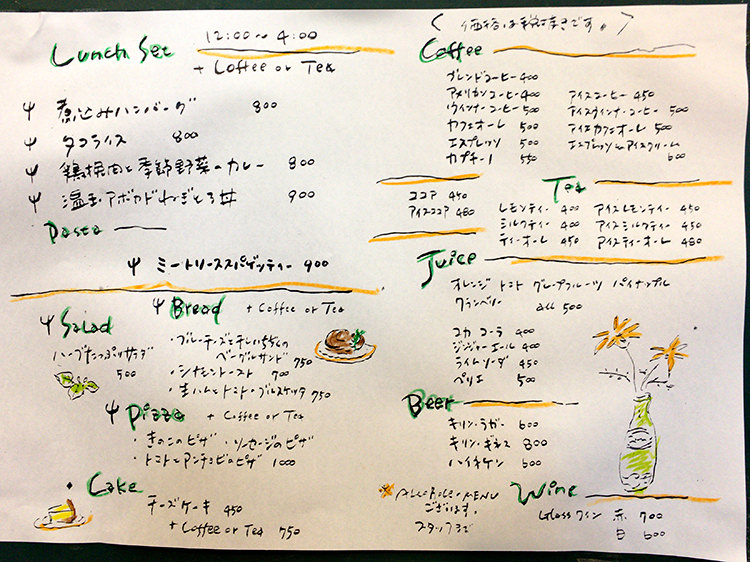 Lunch Set 12:00〜4:00
+ Coffee or Tea
煮込みハンバーグ 800
タコライス 800
鶏挽肉と季節野菜のカレー 800
温玉・アボカドねぎとろ丼 900
Pasta
ミートソーススパゲッティー 900
Salad
ハーブたっぷりサラダ
500
Bread + Coffee or Tea
・ブルーチーズと干しいちじくの
ベーグルサンド 750
・シナモントースト 700
・生ハムとトマトのブルスケッタ 750
Pizza + Coffee or Tea
・きのこのピザ ・ソーセージのピザ
・トマトとアンチョビのピザ 1000
Cake
チーズケーキ 450
+ Coffee or Tea 750
〈 価格は税抜きです。〉
Coffee
ブレンドコーヒー 400
アメリカンコーヒー 400 アイスコーヒー 450
ウィンナーコーヒー 500 アイスウィンナーコーヒー 500
カフェオーレ 500 アイスカフェオーレ 500
エスプレッソ 500 エスプレッソ アイスクリーム
カプチーノ 550 600
ココア 450
アイスココア 480
Tea
レモンティー 400 アイスレモンティー 450
ミルクティー 400 アイスミルクティー 450
ティーオーレ 450 アイスティーオーレ 480
Juice
オレンジ トマト グレープフルーツ パイナップル
クランベリー all 500
コカコーラ 400
ジンジャーエール 400
ライムソーダ 450
ペリエ 500
Beer
キリン・ラガー 600
キリン・ギネス 800
ハイネケン 600
MENU
ございます。
スタッフまで
Wine
Glassワイン 赤 700
白 600